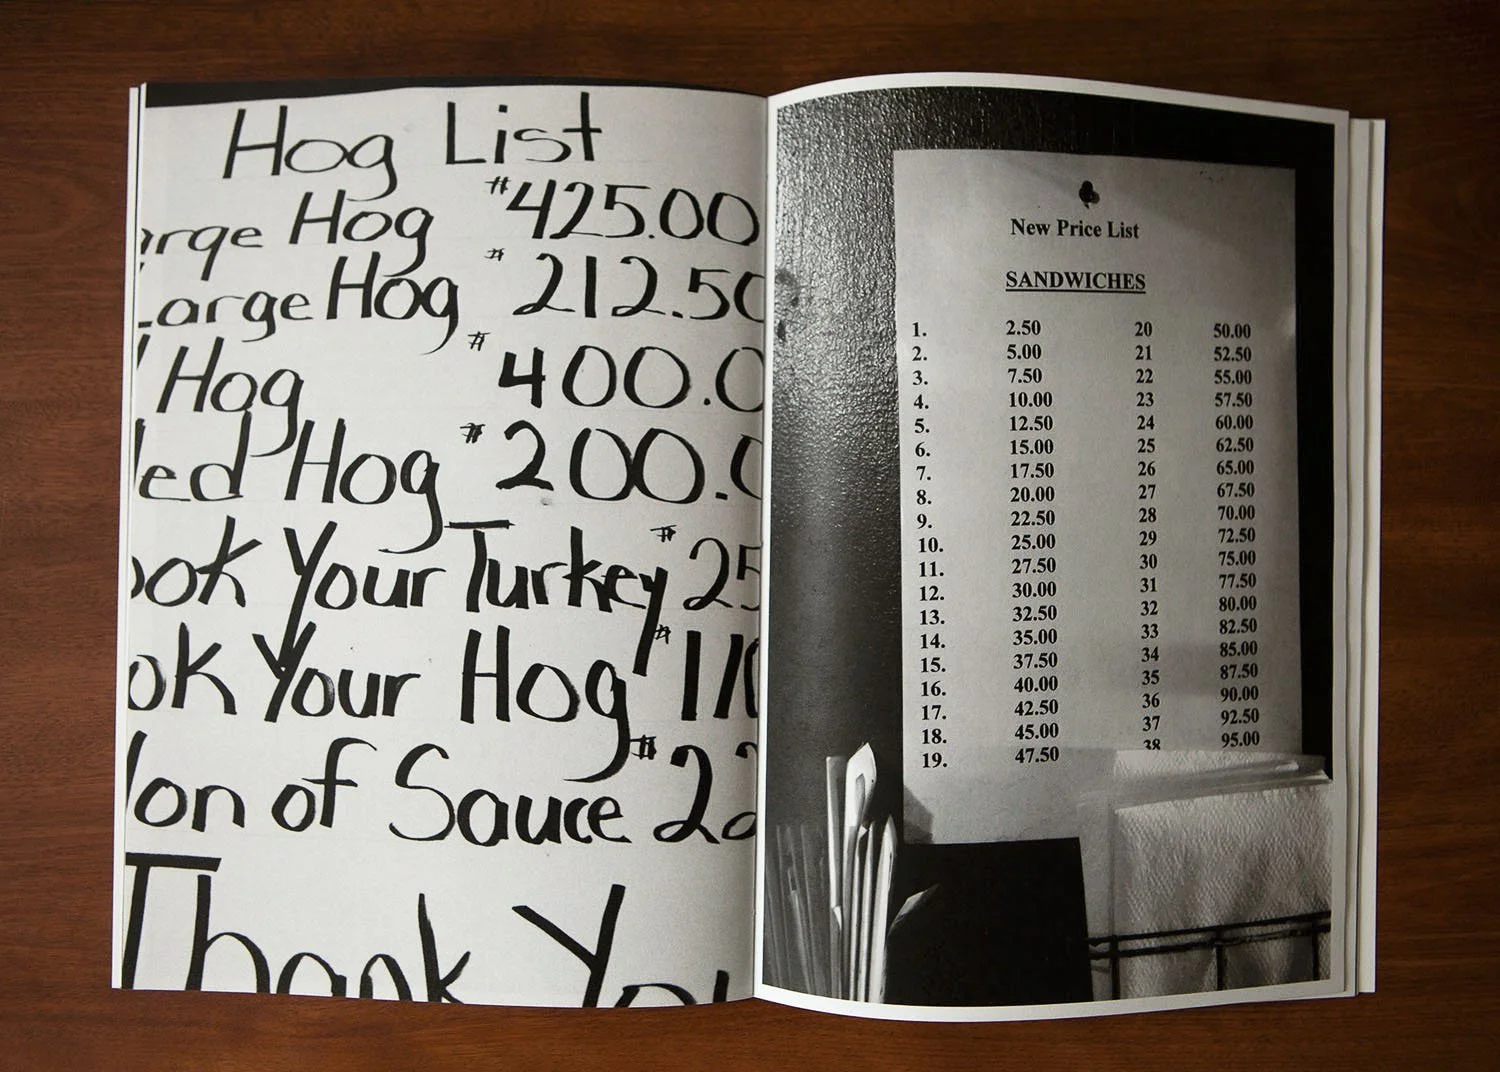 Hog List
arge Hog #425.00
Large Hog #212.50
Hog #400.0
led Hog #200.0
ook Your Turkey #25
ok Your Hog #110
lon of Sauce #22
Thank You
New Price List
SANDWICHES
1. 2.50 20 50.00
2. 5.00 21 52.50
3. 7.50 22 55.00
4. 10.00 23 57.50
5. 12.50 24 60.00
6. 15.00 25 62.50
7. 17.50 26 65.00
8. 20.00 27 67.50
9. 22.50 28 70.00
10. 25.00 29 72.50
11. 27.50 30 75.00
12. 30.00 31 77.50
13. 32.50 32 80.00
14. 35.00 33 82.50
15. 37.50 34 85.00
16. 40.00 35 87.50
17. 42.50 36 90.00
18. 45.00 37 92.50
19. 47.50 38 95.00